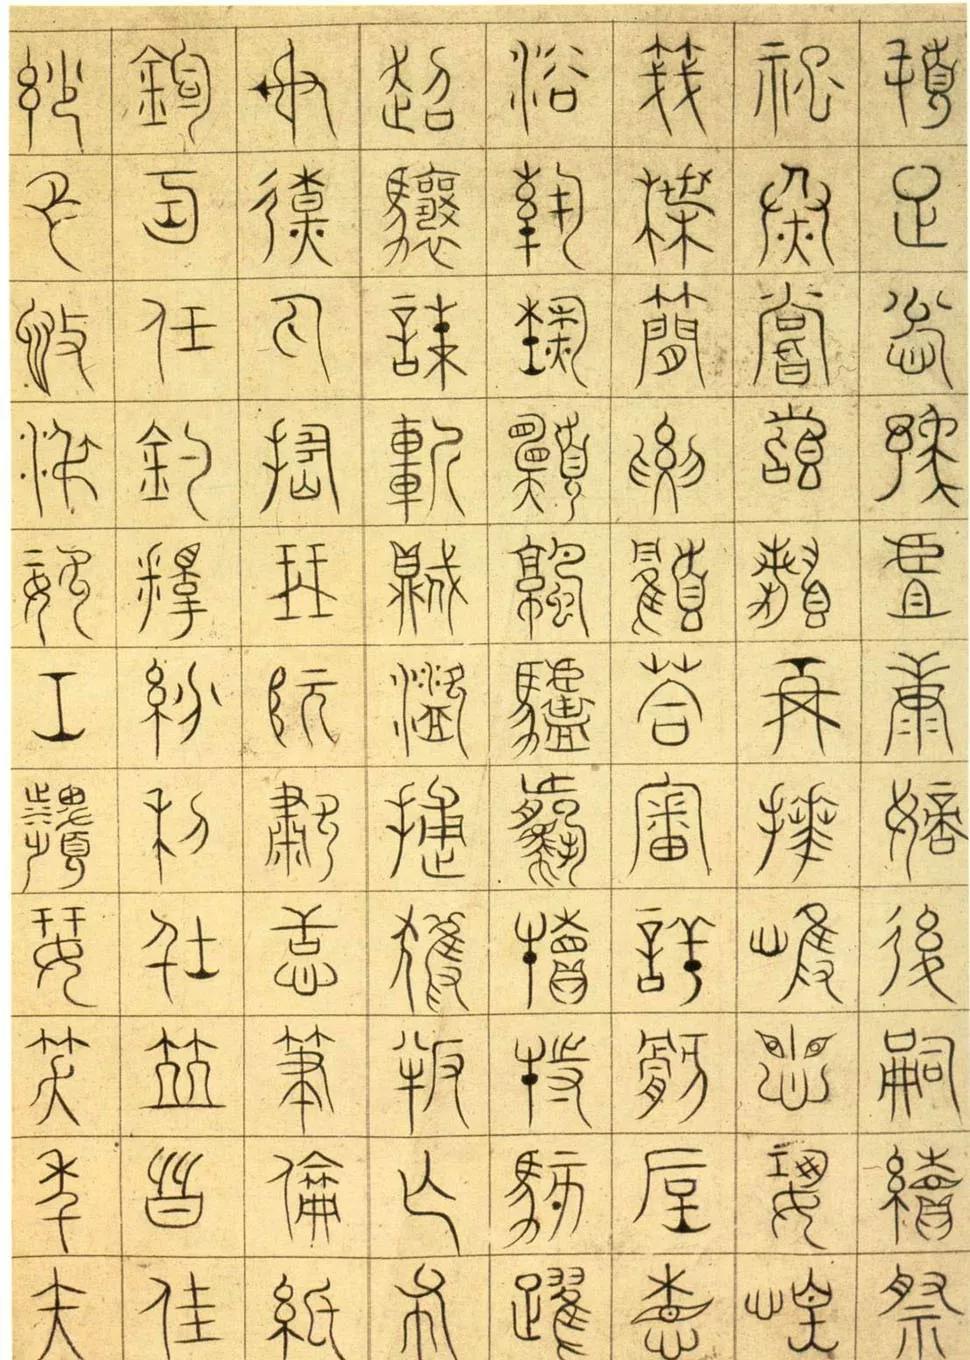 頓足悅豫且康嫡後嗣續祭
祀烝嘗稽顙再拜悚懼恐惶
箋牒簡要顧答審詳骸垢想
浴執熱願涼驢騾犢特駭躍
超驤誅斬賊盜捕獲叛亡布
射遼丸嵇琴阮嘯恬筆倫紙
鈞巧任釣釋紛利俗並皆佳
妙毛施淑姿工顰妍笑年矢